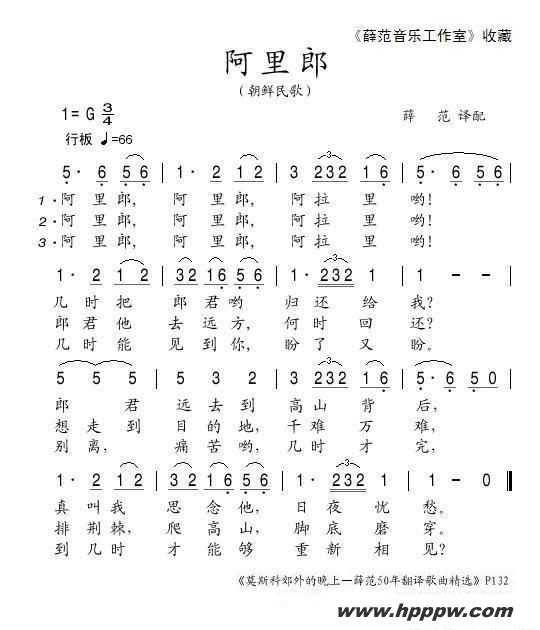 《薛范音乐工作室》收藏
阿里郎
（朝鲜民歌）
1= G 3/4
薛 范 译配
行板 ♩=66
5· 6 5 6 | 1· 2 1 2 | 3 2 3 2 1 6 | 5· 6 5 6 |
1·阿里郎, 阿里郎, 阿拉里哟!
2·阿里郎, 阿里郎, 阿拉里哟!
3·阿里郎, 阿里郎, 阿拉里哟!
1· 2 1 2 | 3 2 1 6 5 6 | 1· 2 3 2 1 | 1 - - |
几时把郎君哟归还给我?
郎君他去远方, 何时回还?
几时能见到你, 盼了又盼。
5 5 5 | 5 3 2 | 3 2 3 2 1 6 | 5· 6 5 0 |
郎君远去到高山背后,
想走到目的地, 千难万难,
别离, 痛苦哟, 几时才完,
1· 2 1 2 | 3 2 1 6 5 6 | 1· 2 3 2 1 | 1 - - ‖
真叫我思念他, 日夜忧愁。
排荆棘, 爬高山, 脚底磨穿。
到几时才能够重新相见?
《莫斯科郊外的晚上—薛范50年翻译歌曲精选》P132
www.hpppw.com